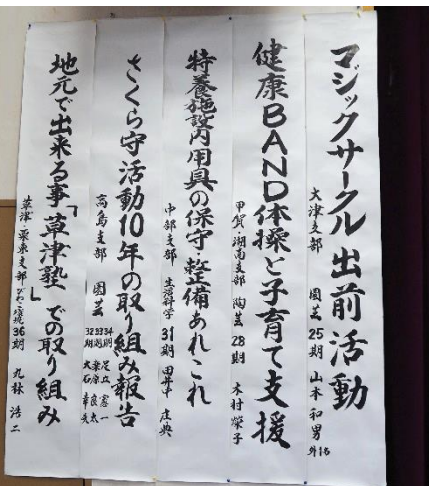 マジックサークル出前活動
大津支部 園芸 25期 山本和男 外16
健康BAND体操と子育て支援
甲賀・湖南支部 陶芸 28期 木村榮子
特養施設内用具の保守・整備あれこれ
中部支部 生活科学 31期 田中 庄典
さくら守活動10年の取り組み報告
高島支部 園芸 34期 足立 憲一
33期 桑原 良太
32期 大石 幸夫
地元で出来る事「草津塾」での取り組み
草津・栗東支部 びわこ環境 36期 丸林 浩二